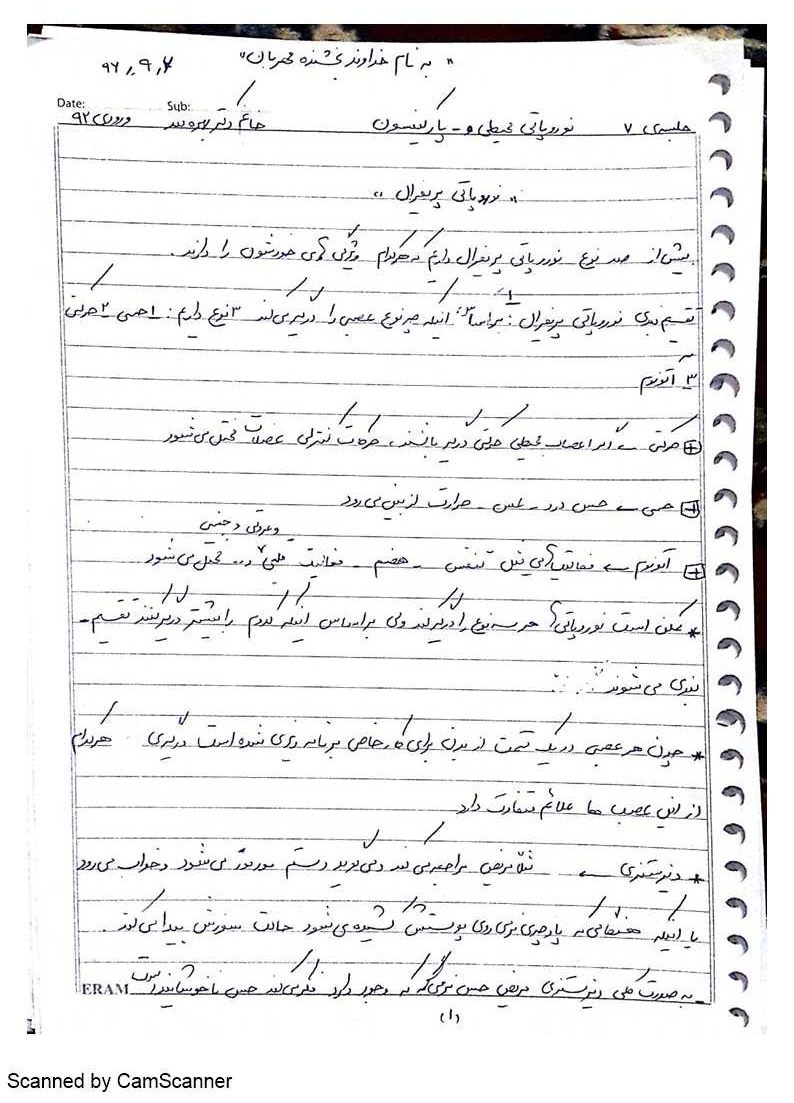 "به نام خداوند بخشنده مهربان"
۹۶,۹,۴
Date: Sub:
جلسه‌ی ۷ نوروپاتی محیطی و پارکینسون خانم دکتر بهره‌مند ورودی ۹۲
"نوروپاتی پریفرال"
بیش از صد نوع نوروپاتی پریفرال داریم که هرکدام ویژگی های خودشون را دارند.
تقسیم بندی نوروپاتی پریفرال: ۱ براساس اینکه چه نوع عصبی را درگیر می‌کند ۳ نوع داریم: ۱ حسی ۲ حرکتی
۳ اتونوم
+ حرکتی ← اگر اعصاب محیطی حرکتی درگیر باشند، حرکات کنترلی عضلات مختل می‌شود
+ حسی ← حس درد - لمس - حرارت از بین می‌رود
و عروقی و جنسی
+ اتونوم ← فعالیت هایی مثل تنفس - هضم - فعالیت قلبی و... مختل می‌شود
* ممکن است نوروپاتی ها هر سه نوع را درگیر کند ولی براساس اینکه کدوم را بیشتر درگیر کنند تقسیم-
بندی می‌شوند
* چون هر عصبی در یک قسمت از بدن برای کار خاصی برنامه ریزی شده است درگیری هرکدام
از این عصب ها علائم متفاوت دارد
* دیزستزی ← مثلا مریض مراجعه می‌کند و می‌گوید دستم مورمور می‌شود و خواب می‌رود
یا اینکه هنگامی که پارچه‌ی نرمی روی پوستش کشیده می‌شود حالت سوزش پیدا می‌کند.
- به صورت کلی دیزستزی مریض حس نرمی که وجود دارد فکر می‌کند حس ناخوشایند است
ERAM
(۱)
Scanned by CamScanner